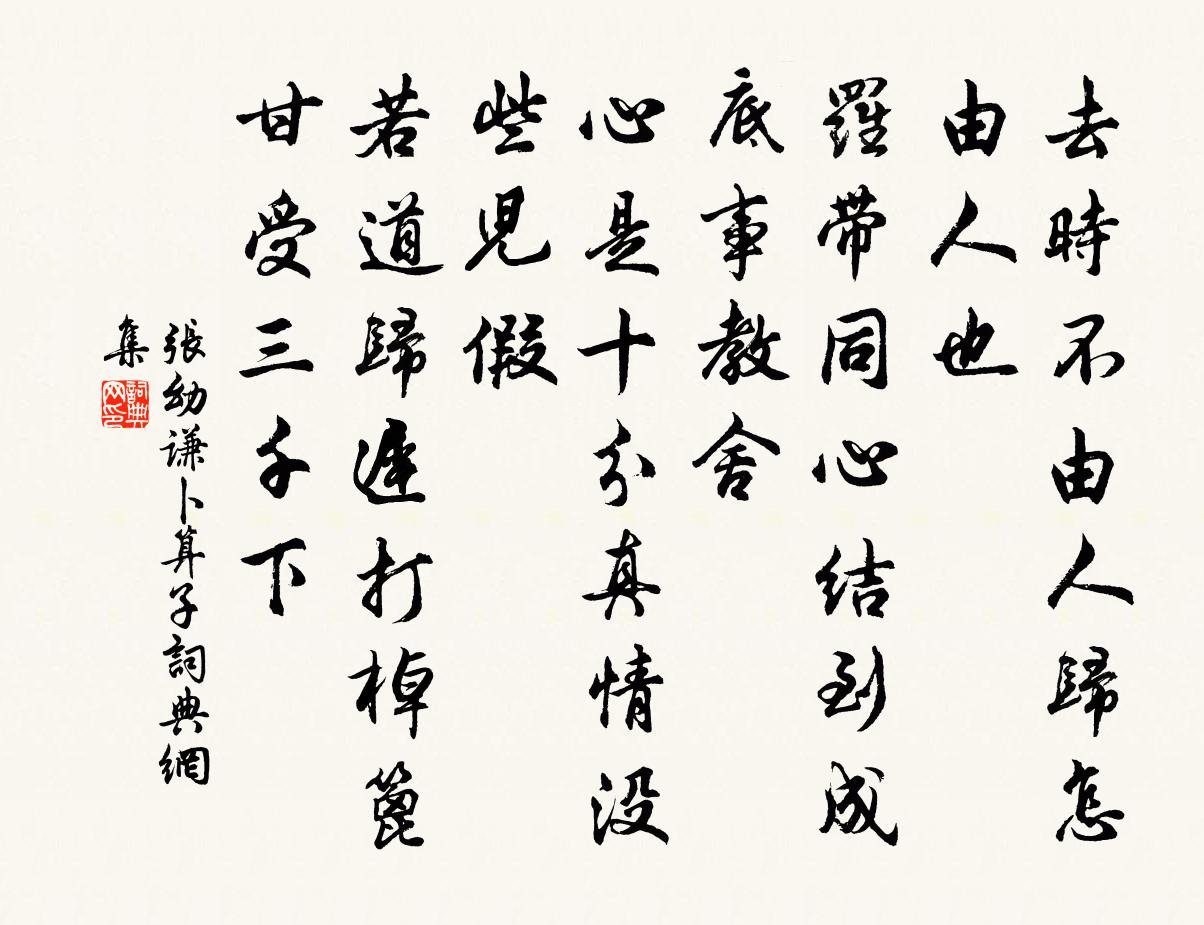 去時不由人歸怎
由人也
羅帶同心結到成
底事教舍
心是十分真情没
些児假
若道歸遲打棹篦
甘受三千下
張幼谦卜算子詞典網
集
詞典
网印